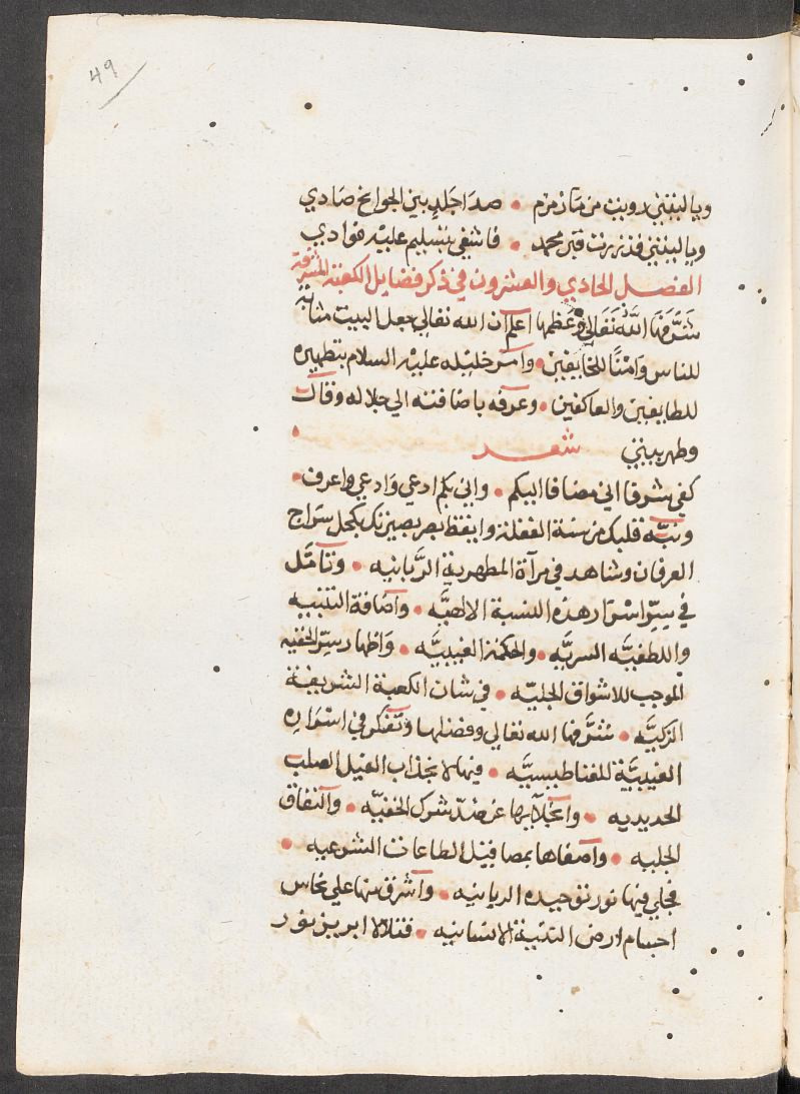 49
ويا ليتني رويت من ماء زمزم • صدا جلد بين الجوانح صادي
ويا ليتني قد زرت قبر محمد • فاشفي بتسليم عليه فوادي
الفصل الحادي والعشرون في ذكر فضايل الكعبة المشرفة
شَرَّفَهَا اللّه تَعَالي وعَظمها اعلم ان الله تعالي جعل البيت مثابة
للناس وَامْنًا للخايفين • وامر خليله عليه السلام بتطهيره
للطايفين والعاكفين • وعرفه باضافته الي جلاله وقال
وطهر بيتي شعر
كفي شرفا اني مضافا اليكم • واني بكم ادعي وَادعي واعرف •
ونبّه قلبك من سنة الغفلة وايقظ بصر بصيرتك بكحل سراج
العرفان وشاهد في مرآة المظهرية الرَّبانيه • وتامَّل
في سِرِّ اسْرَار هذه النسبة الالهيَّه • واضافة التنبيه
واللطفيَّه السريَّه • والحكمة الغيبيَّه • وَاظهار سِرّ الخفيه
الموجب للاشواق الجليّه • في شان الكعبة الشريفة
الزكيَّه • شَرَّفها الله تعالي وفضلها وتفكر في اسْرَاره
الغيبيَّة للمغناطيسيَّه • فيها لانجذاب الفيل الصلب
الحديديه • وانجلآيها عن ضدّ شرك الخفيّه • والنفاق
الجليه • واصفاها بمصاقيل الطاعات الشرعيه •
فجلي فيها نور توحيده الربانيه • واشرق منها علي نحاس
اجسام ارض التدنية الانسانيه • فتلالا ابريز نور